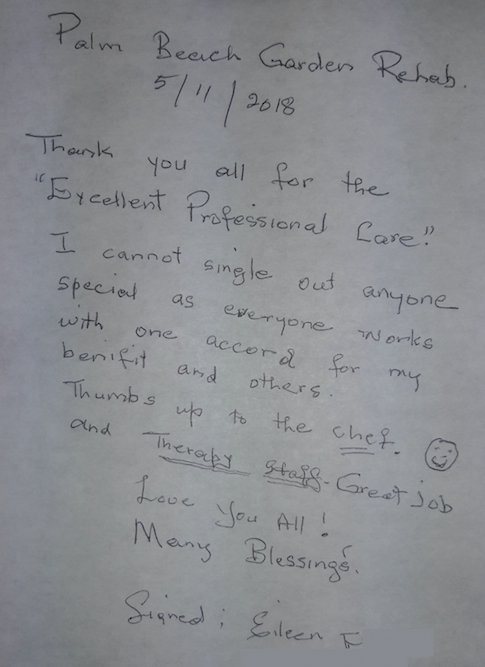 Palm Beach Garden Rehab.
5/11/2018
Thank you all for the
"Excellent Professional Care."
I cannot single out anyone
special as everyone works
with one accord for my
benifit and others.
Thumbs up to the chef.
and Therapy Staff - Great job
Love You All!
Many Blessings.
Signed: Eileen F